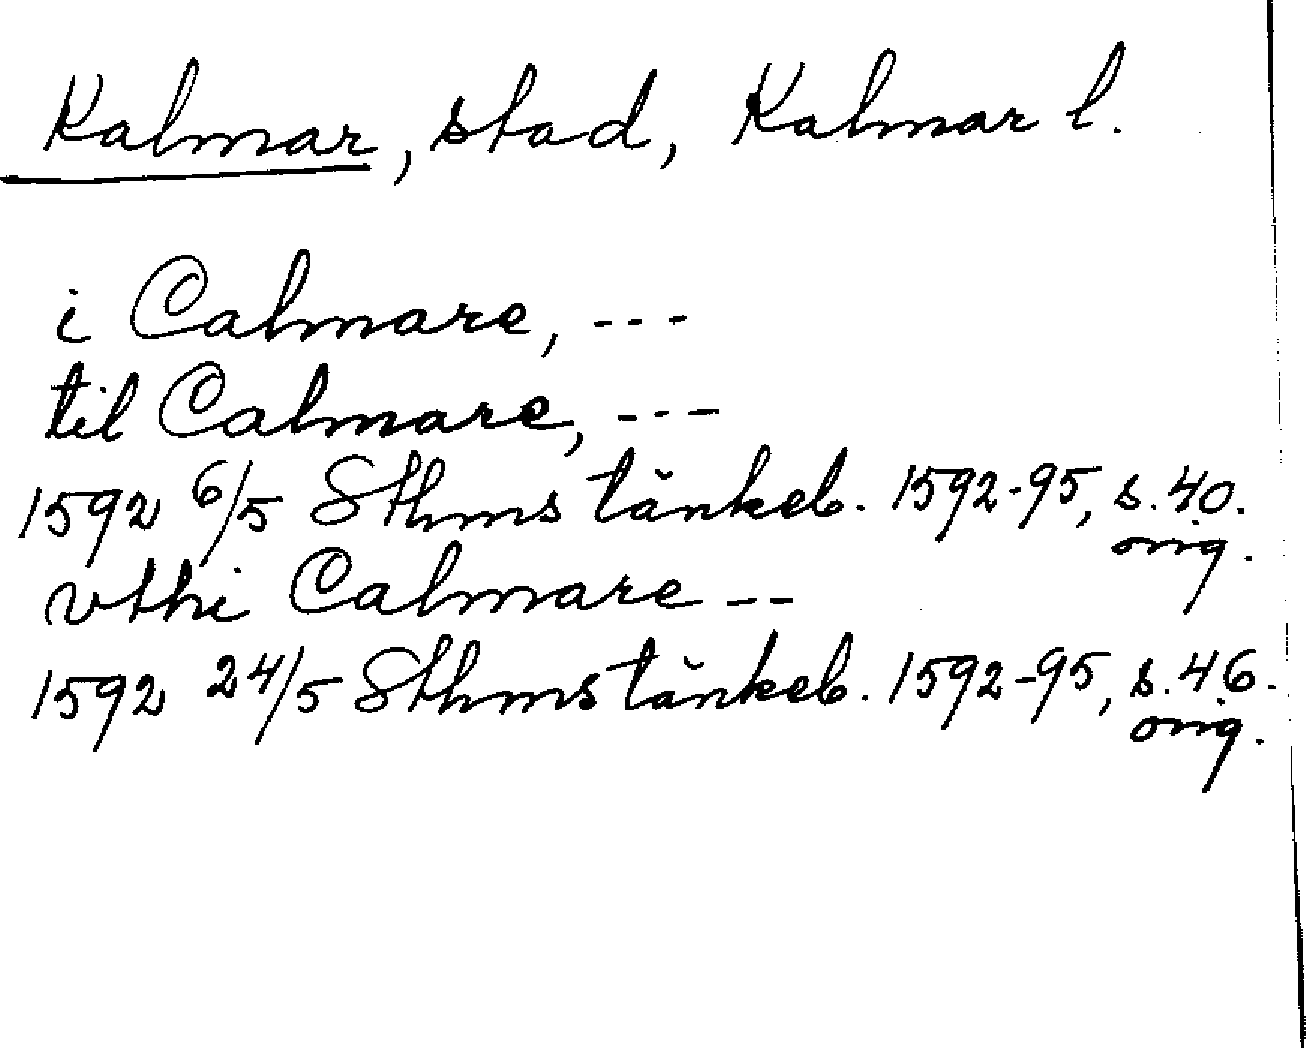 Kalmar, stad, Kalmar l.
i Calmare, ---
til Calmare, ---
1592 6/5 Sthms tänkeb. 1592-95, s. 40.
orig.
vthi Calmare --
1592 24/5 Sthms tänkeb. 1592-95, s. 46.
orig.